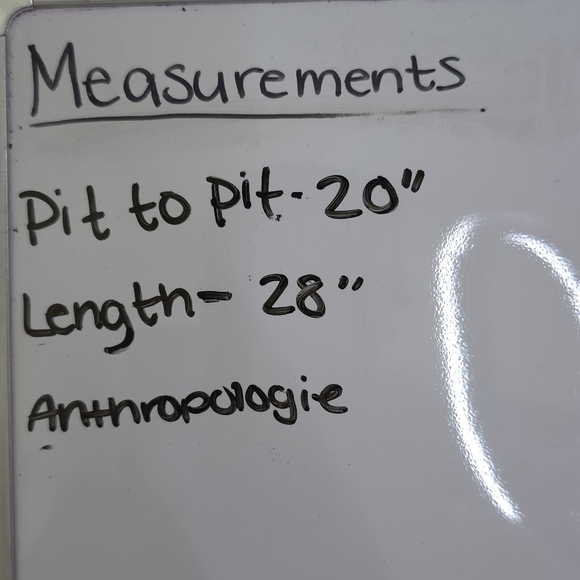 Measurements
Pit to pit- 20"
Length- 28"
Anthropologie